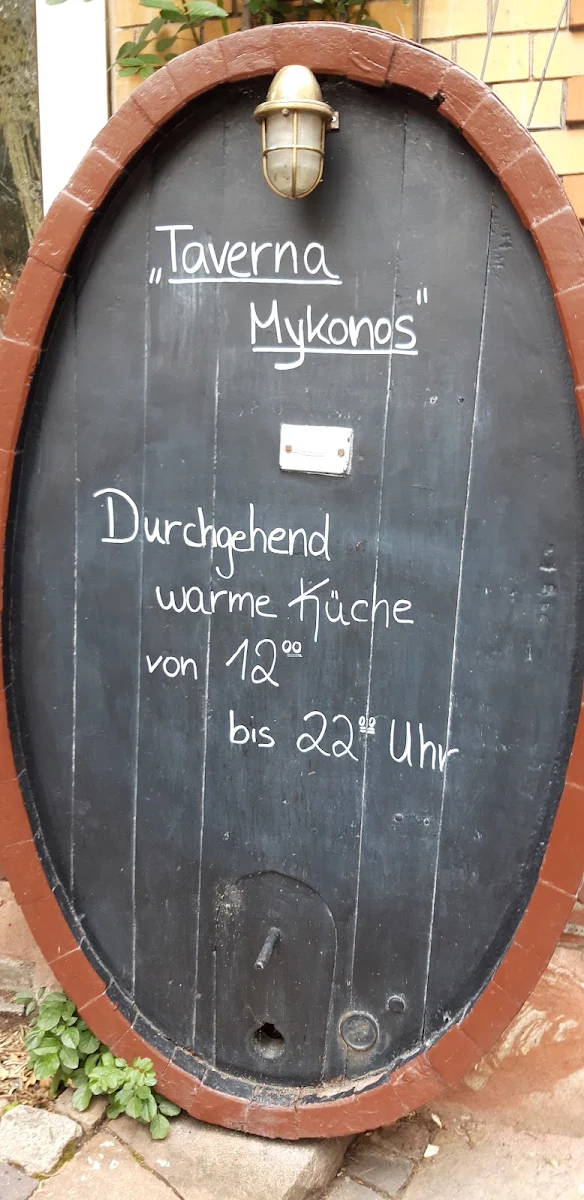 „Taverna
Mykonos"
Durchgehend
warme Küche
von 12⁰⁰
bis 22⁰⁰ Uhr